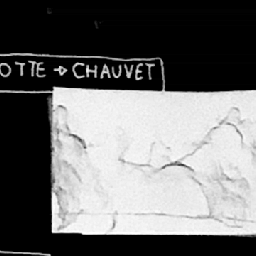 OTTE → CHAUVET